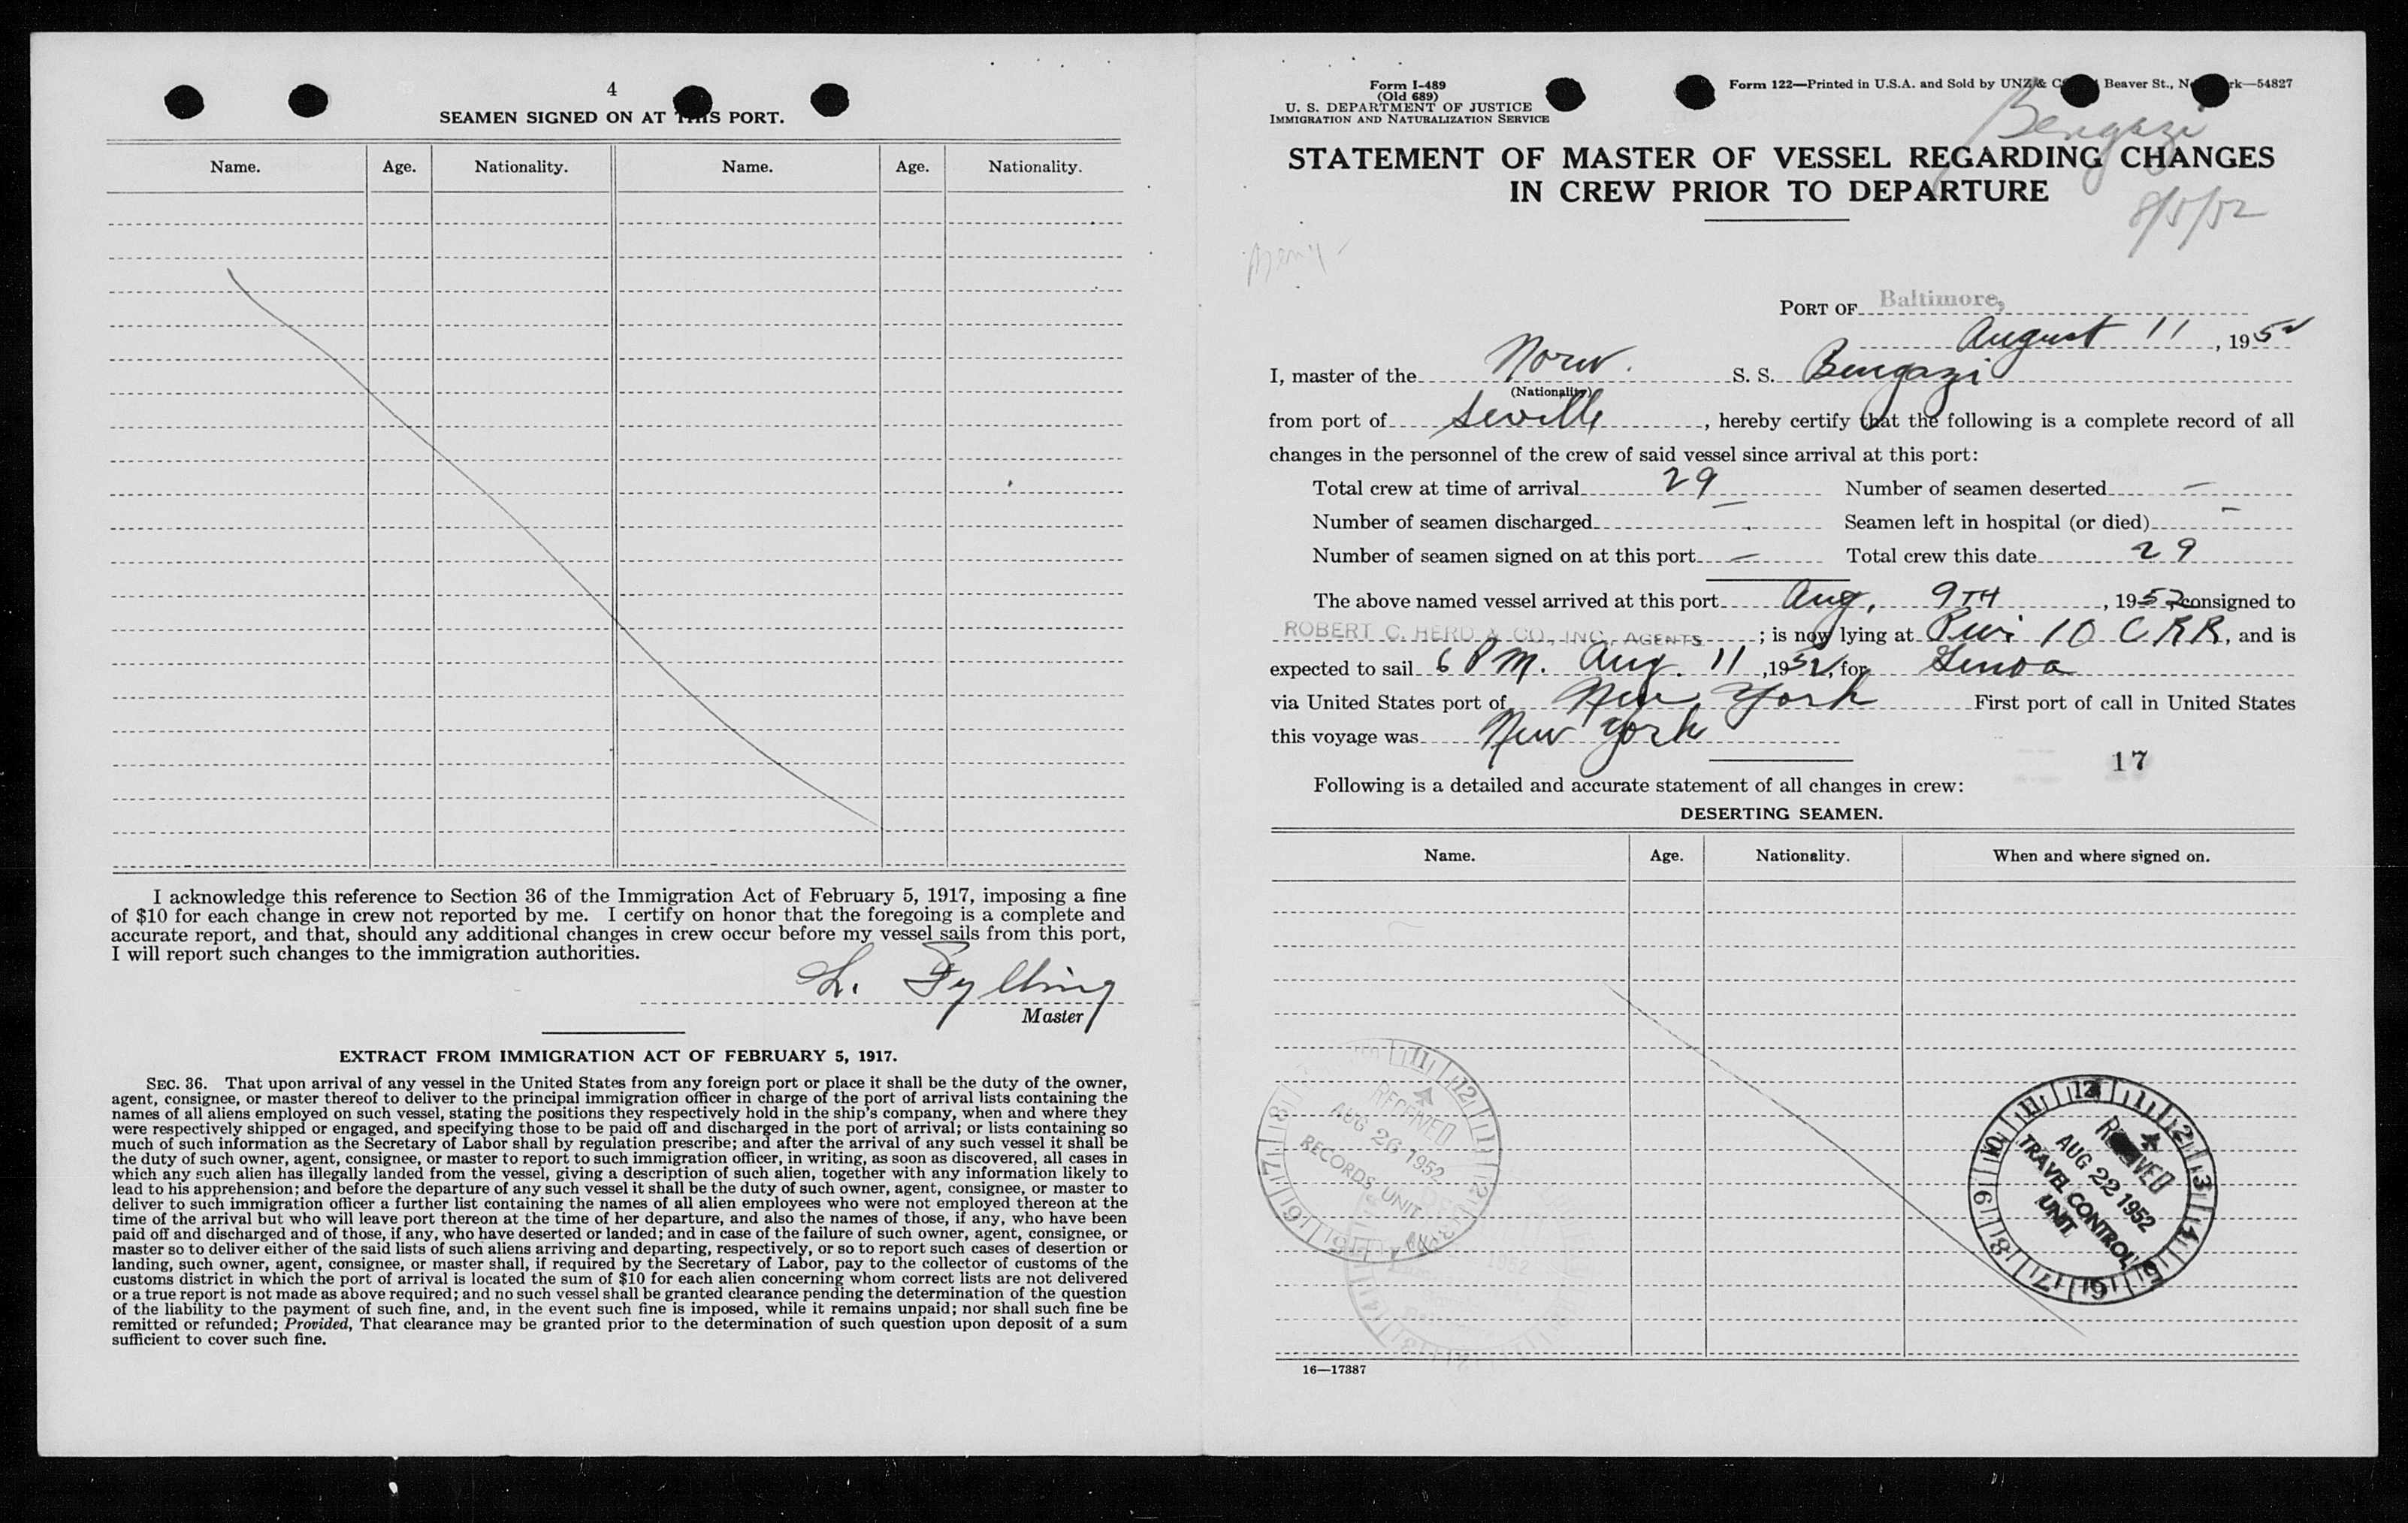 4
SEAMEN SIGNED ON AT THIS PORT.
Name. Age. Nationality. Name. Age. Nationality.
I acknowledge this reference to Section 36 of the Immigration Act of February 5, 1917, imposing a fine
of $10 for each change in crew not reported by me. I certify on honor that the foregoing is a complete and
accurate report, and that, should any additional changes in crew occur before my vessel sails from this port,
I will report such changes to the immigration authorities.
L. Fylling
Master
EXTRACT FROM IMMIGRATION ACT OF FEBRUARY 5, 1917.
SEC. 36. That upon arrival of any vessel in the United States from any foreign port or place it shall be the duty of the owner,
agent, consignee, or master thereof to deliver to the principal immigration officer in charge of the port of arrival lists containing the
names of all aliens employed on such vessel, stating the positions they respectively hold in the ship's company, when and where they
were respectively shipped or engaged, and specifying those to be paid off and discharged in the port of arrival; or lists containing so
much of such information as the Secretary of Labor shall by regulation prescribe; and after the arrival of any such vessel it shall be
the duty of such owner, agent, consignee, or master to report to such immigration officer, in writing, as soon as discovered, all cases in
which any such alien has illegally landed from the vessel, giving a description of such alien, together with any information likely to
lead to his apprehension; and before the departure of any such vessel it shall be the duty of such owner, agent, consignee, or master to
deliver to such immigration officer a further list containing the names of all alien employees who were not employed thereon at the
time of the arrival but who will leave port thereon at the time of her departure, and also the names of those, if any, who have been
paid off and discharged and of those, if any, who have deserted or landed; and in case of the failure of such owner, agent, consignee, or
master so to deliver either of the said lists of such aliens arriving and departing, respectively, or so to report such cases of desertion or
landing, such owner, agent, consignee, or master shall, if required by the Secretary of Labor, pay to the collector of customs of the
customs district in which the port of arrival is located the sum of $10 for each alien concerning whom correct lists are not delivered
or a true report is not made as above required; and no such vessel shall be granted clearance pending the determination of the question
of the liability to the payment of such fine, and, in the event such fine is imposed, while it remains unpaid; nor shall such fine be
remitted or refunded; Provided, That clearance may be granted prior to the determination of such question upon deposit of a sum
sufficient to cover such fine.
Form I-489
(Old 689)
U. S. DEPARTMENT OF JUSTICE
IMMIGRATION AND NATURALIZATION SERVICE
Form 122—Printed in U.S.A. and Sold by UNZ & Beaver St., 54827
Bengazi
STATEMENT OF MASTER OF VESSEL REGARDING CHANGES
IN CREW PRIOR TO DEPARTURE
8/5/52
PORT OF Baltimore,
August 11, 1952
I, master of the Norw. S. S. Bengazi
(Nationality)
from port of Seville, hereby certify that the following is a complete record of all
changes in the personnel of the crew of said vessel since arrival at this port:
Total crew at time of arrival 29 Number of seamen deserted —
Number of seamen discharged — Seamen left in hospital (or died) —
Number of seamen signed on at this port — Total crew this date 29
The above named vessel arrived at this port Aug. 9TH, 1952, consigned to
ROBERT C. HERD & CO., INC., AGENTS; is now lying at Pier 10 C R R, and is
expected to sail 6 P M. Aug. 11, 1952, for Genoa
via United States port of New York First port of call in United States
this voyage was New York
17
Following is a detailed and accurate statement of all changes in crew:
DESERTING SEAMEN.
Name. Age. Nationality. When and where signed on.
RECEIVED
AUG 26 1952
RECORDS UNIT
RECEIVED
AUG 22 1952
TRAVEL CONTROL
UNIT
16—17387